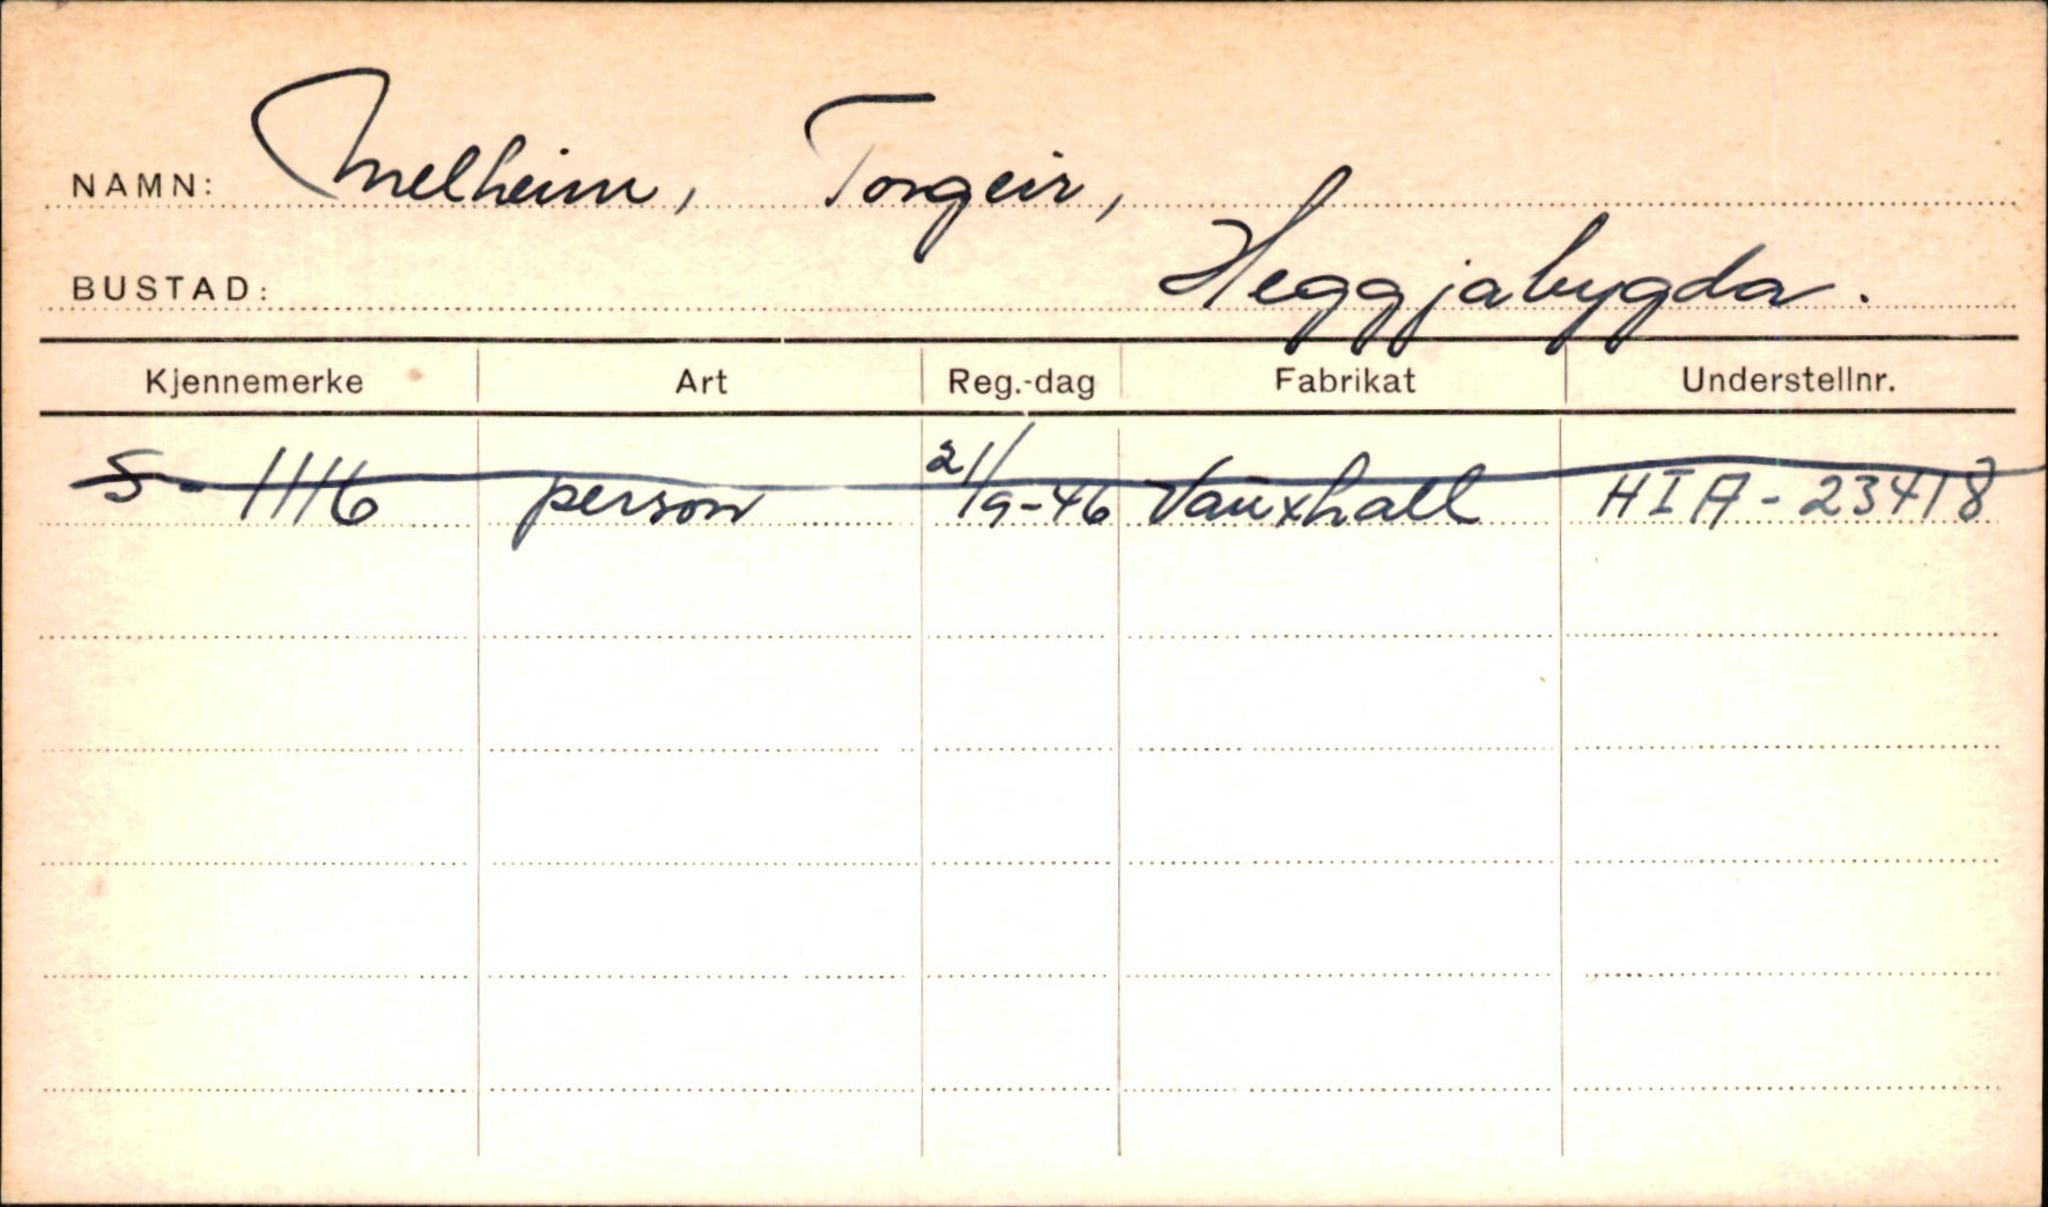 NAMN: Melheim, Torgeir,
BUSTAD: Heggjabygda.
Kjennemerke Art Reg.-dag Fabrikat Understellnr.
S - 1116 person 21/9-46 Vauxhall HIA - 23418